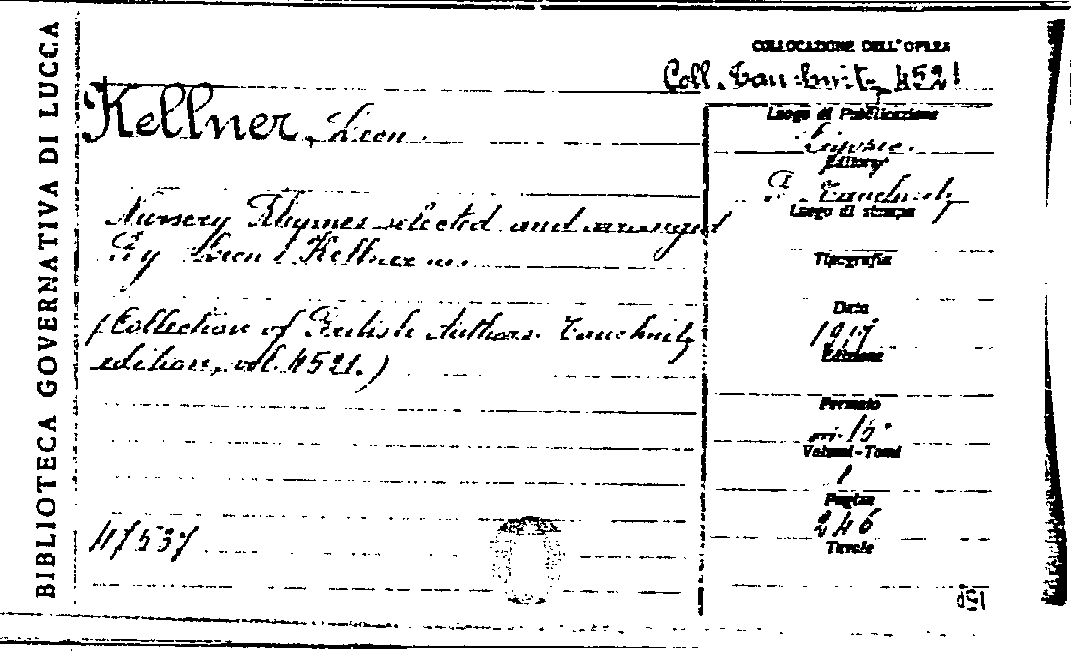 BIBLIOTECA GOVERNATIVA DI LUCCA
COLLOCAZIONE DELL'OPERA
Coll. Tauchnitz 4521
Kellner, Leon.
Nursery Rhymes selected and arranged
By Leon Kellner
(Collection of British Authors. Tauchnitz
edition, vol. 4521.)
Luogo di Pubblicazione
Lipsia.
Editore
B. Tauchnitz
Luogo di stampa
Tipografia
Data
1917
Edizione
Formato
in 16°
Volumi-Tomi
1
Pagine
246
Tavole